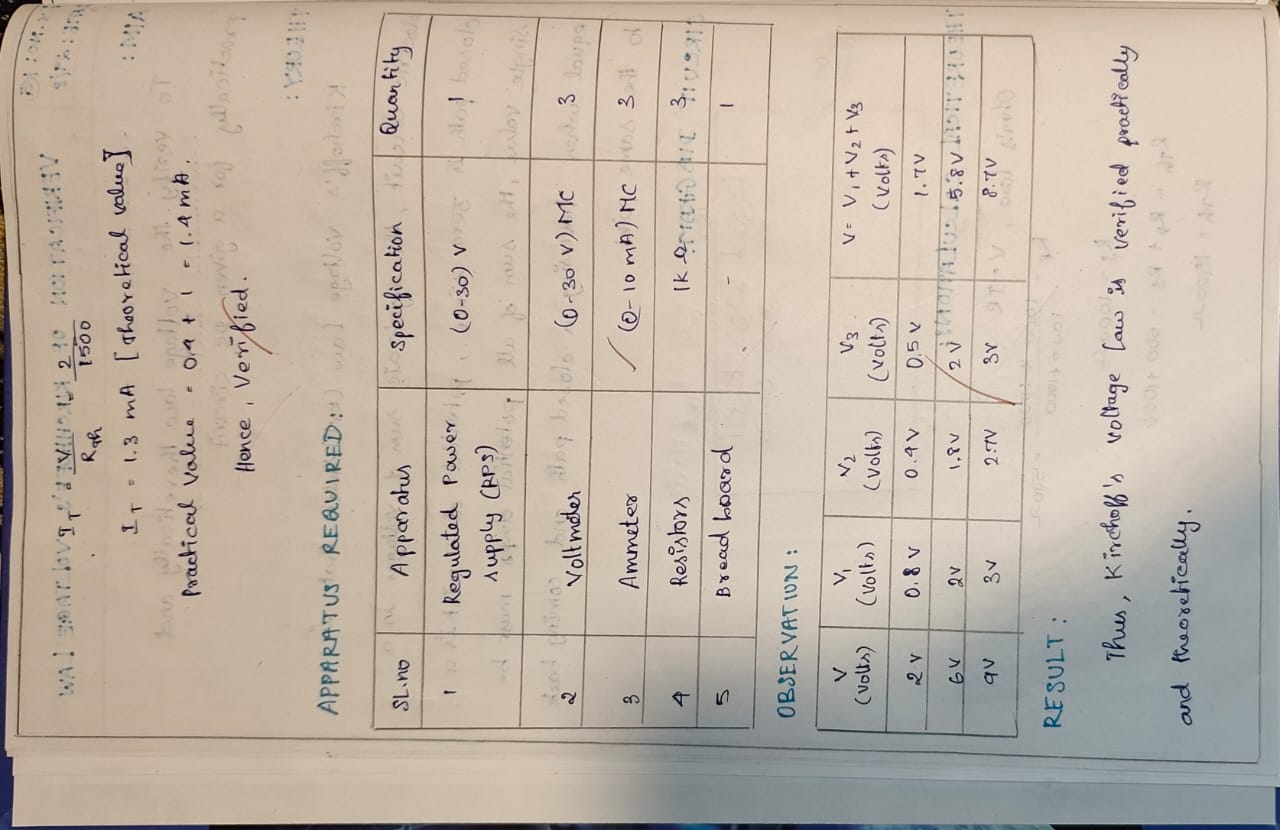 I_T = V/R_Th = 2.0/1500
I_T = 1.3 mA [Theoretical value]
Practical value = 0.4 + 1 = 1.4 mA.
Hence, Verified.
APPARATUS REQUIRED:
SL.no Apparatus Specification Quantity
1 Regulated Power supply (RPS) (0-30) V 1
2 Voltmeter (0-30 V) MC 3
3 Ammeter (0-10 mA) MC 3
4 Resistors 1K Ω 3
5 Bread board - 1
OBSERVATION:
V (volts) V1 (volts) V2 (volts) V3 (volts) V = V1 + V2 + V3 (volts)
2V 0.8V 0.4V 0.5V 1.7V
6V 2V 1.8V 2V 5.8V
9V 3V 2.7V 3V 8.7V
RESULT:
Thus, Kirchoff's voltage law is verified practically
and theoretically.